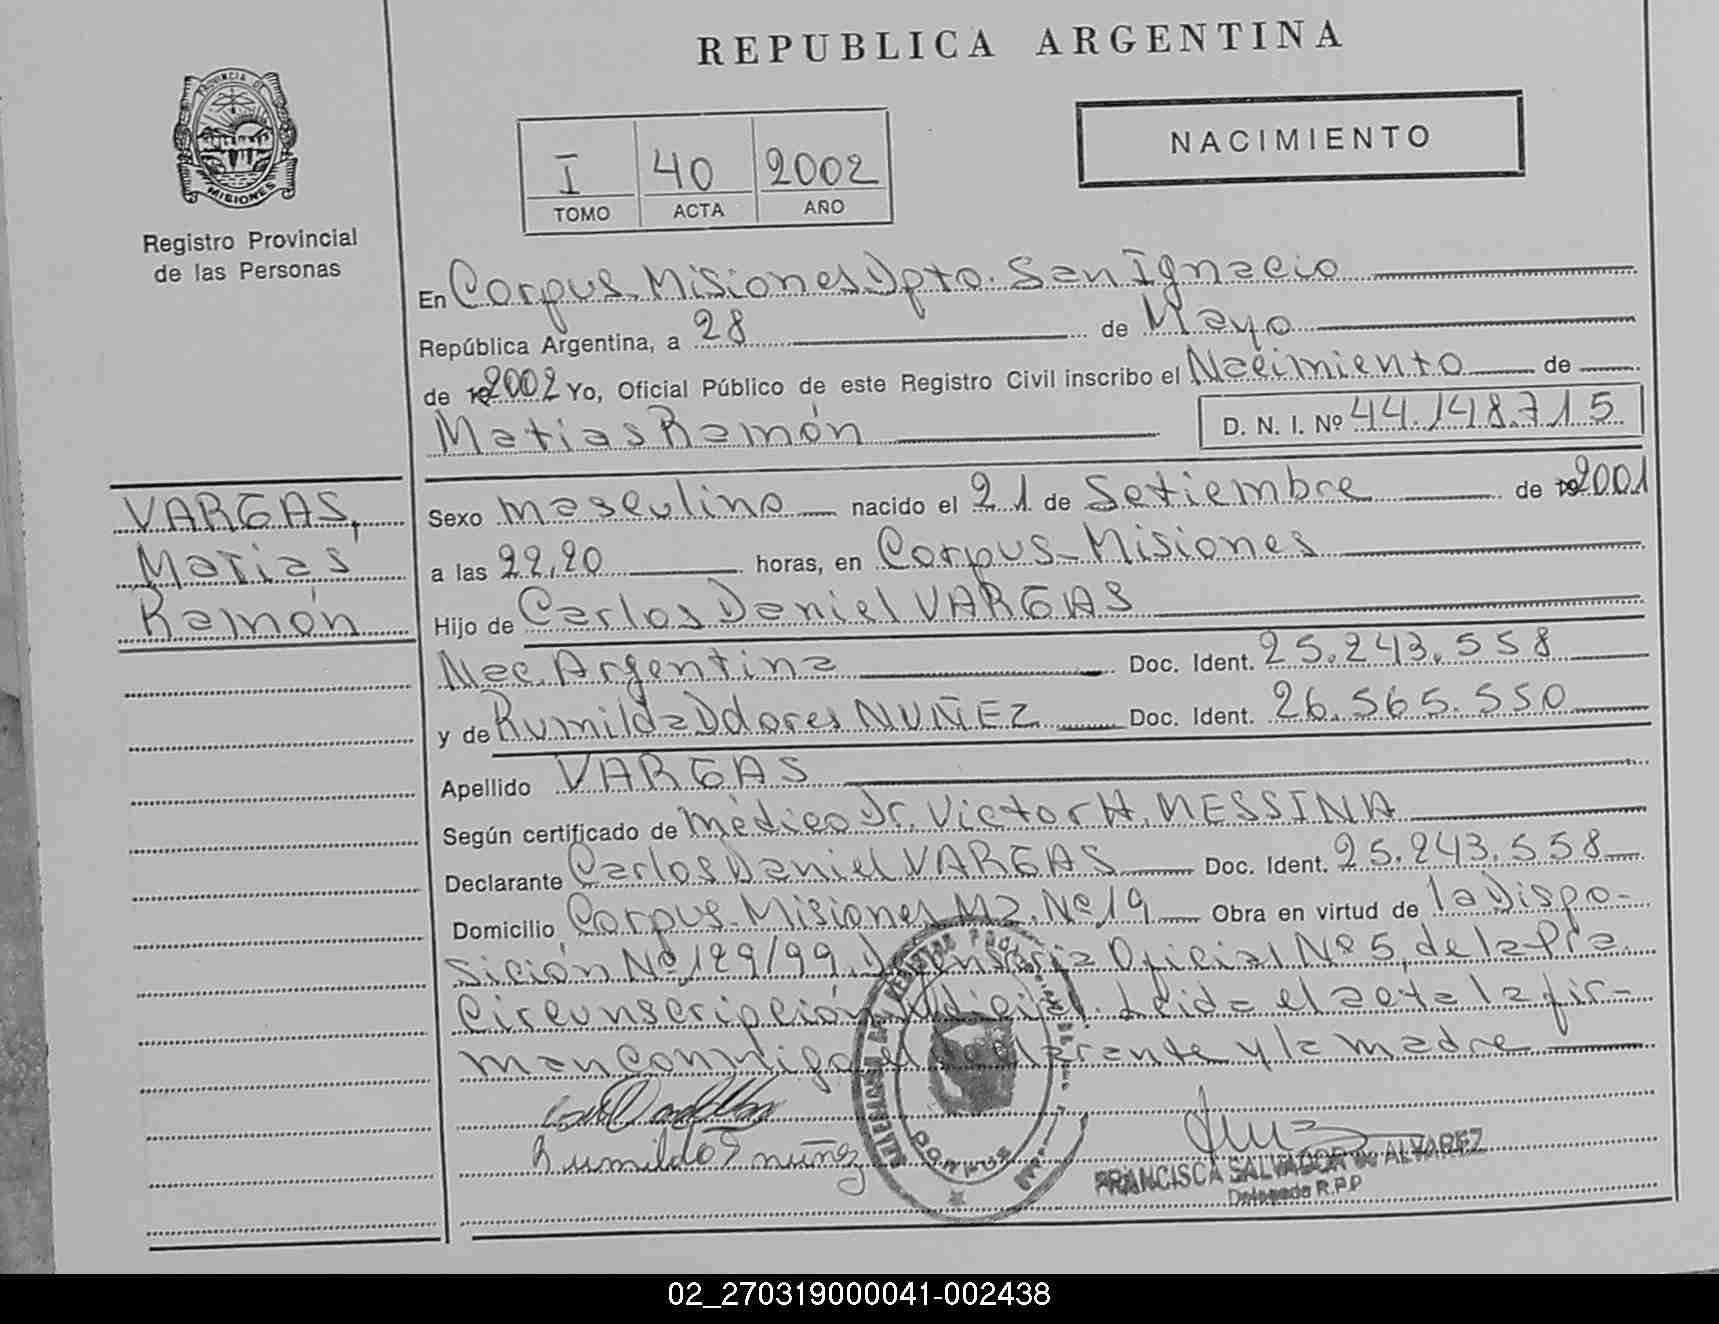 REPUBLICA ARGENTINA
PROVINCIA DE MISIONES
Registro Provincial
de las Personas
I 40 2002
TOMO ACTA AÑO
NACIMIENTO
En Corpus, Misiones Dpto. San Ignacio
República Argentina, a 28 de Mayo
de 2002 Yo, Oficial Público de este Registro Civil inscribo el Nacimiento de
Matias Ramón D. N. I. Nº 44.148.715
VARGAS,
Matias
Ramón
Sexo masculino nacido el 21 de Setiembre de 2001
a las 22,20 horas, en Corpus-Misiones
Hijo de Carlos Daniel VARGAS
Nac. Argentina Doc. Ident. 25.243.558
y de Rumilda Dolores NUÑEZ Doc. Ident. 26.565.550
Apellido VARGAS
Según certificado de médico Dr. Victor H. MESSINA
Declarante Carlos Daniel VARGAS Doc. Ident. 25.243.558
Domicilio Corpus-Misiones Mz. Nº 19 Obra en virtud de la Dispo-
sición Nº 129/99, Defensoría Oficial Nº 5, de la Pra
Circunscripción Judicial. Leida el acta la fir-
man conmigo el declarante y la madre
Rumilda D nuñez
FRANCISCA SALVADOR de ALVAREZ
Delegada R.P.P
CORPUS
02_270319000041-002438